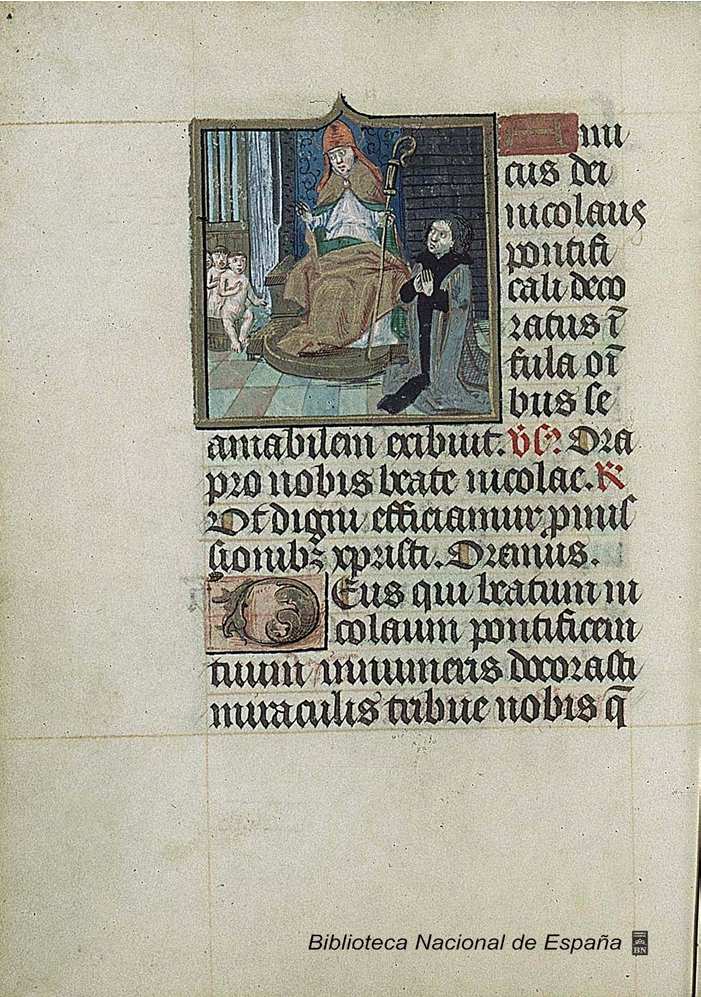 mi
cus dei
nicolaus
pontifi
cali deco
ratus ī
fula oī
bus se
amabilem exibuit. v̄s̄. Ora
pro nobis beate nicolae. R̄
Vt digni efficiamur ꝓmis
sionibꝫ xpristi. Oremus.
Deus qui beatum ni
colaum pontificem
tuum innumeris decorasti
miraculis tribue nobis q̄
Biblioteca Nacional de España
BN